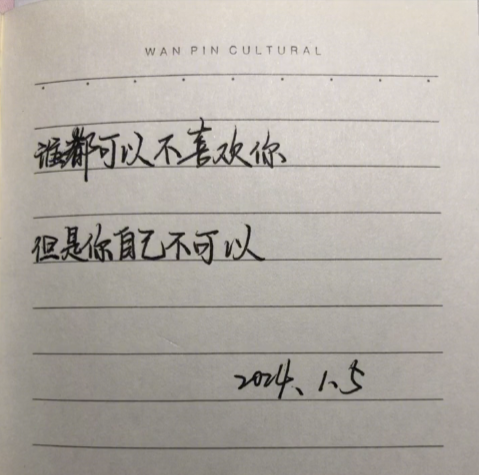 WAN PIN CULTURAL
谁都可以不喜欢你
但是你自己不可以
2024、1、5